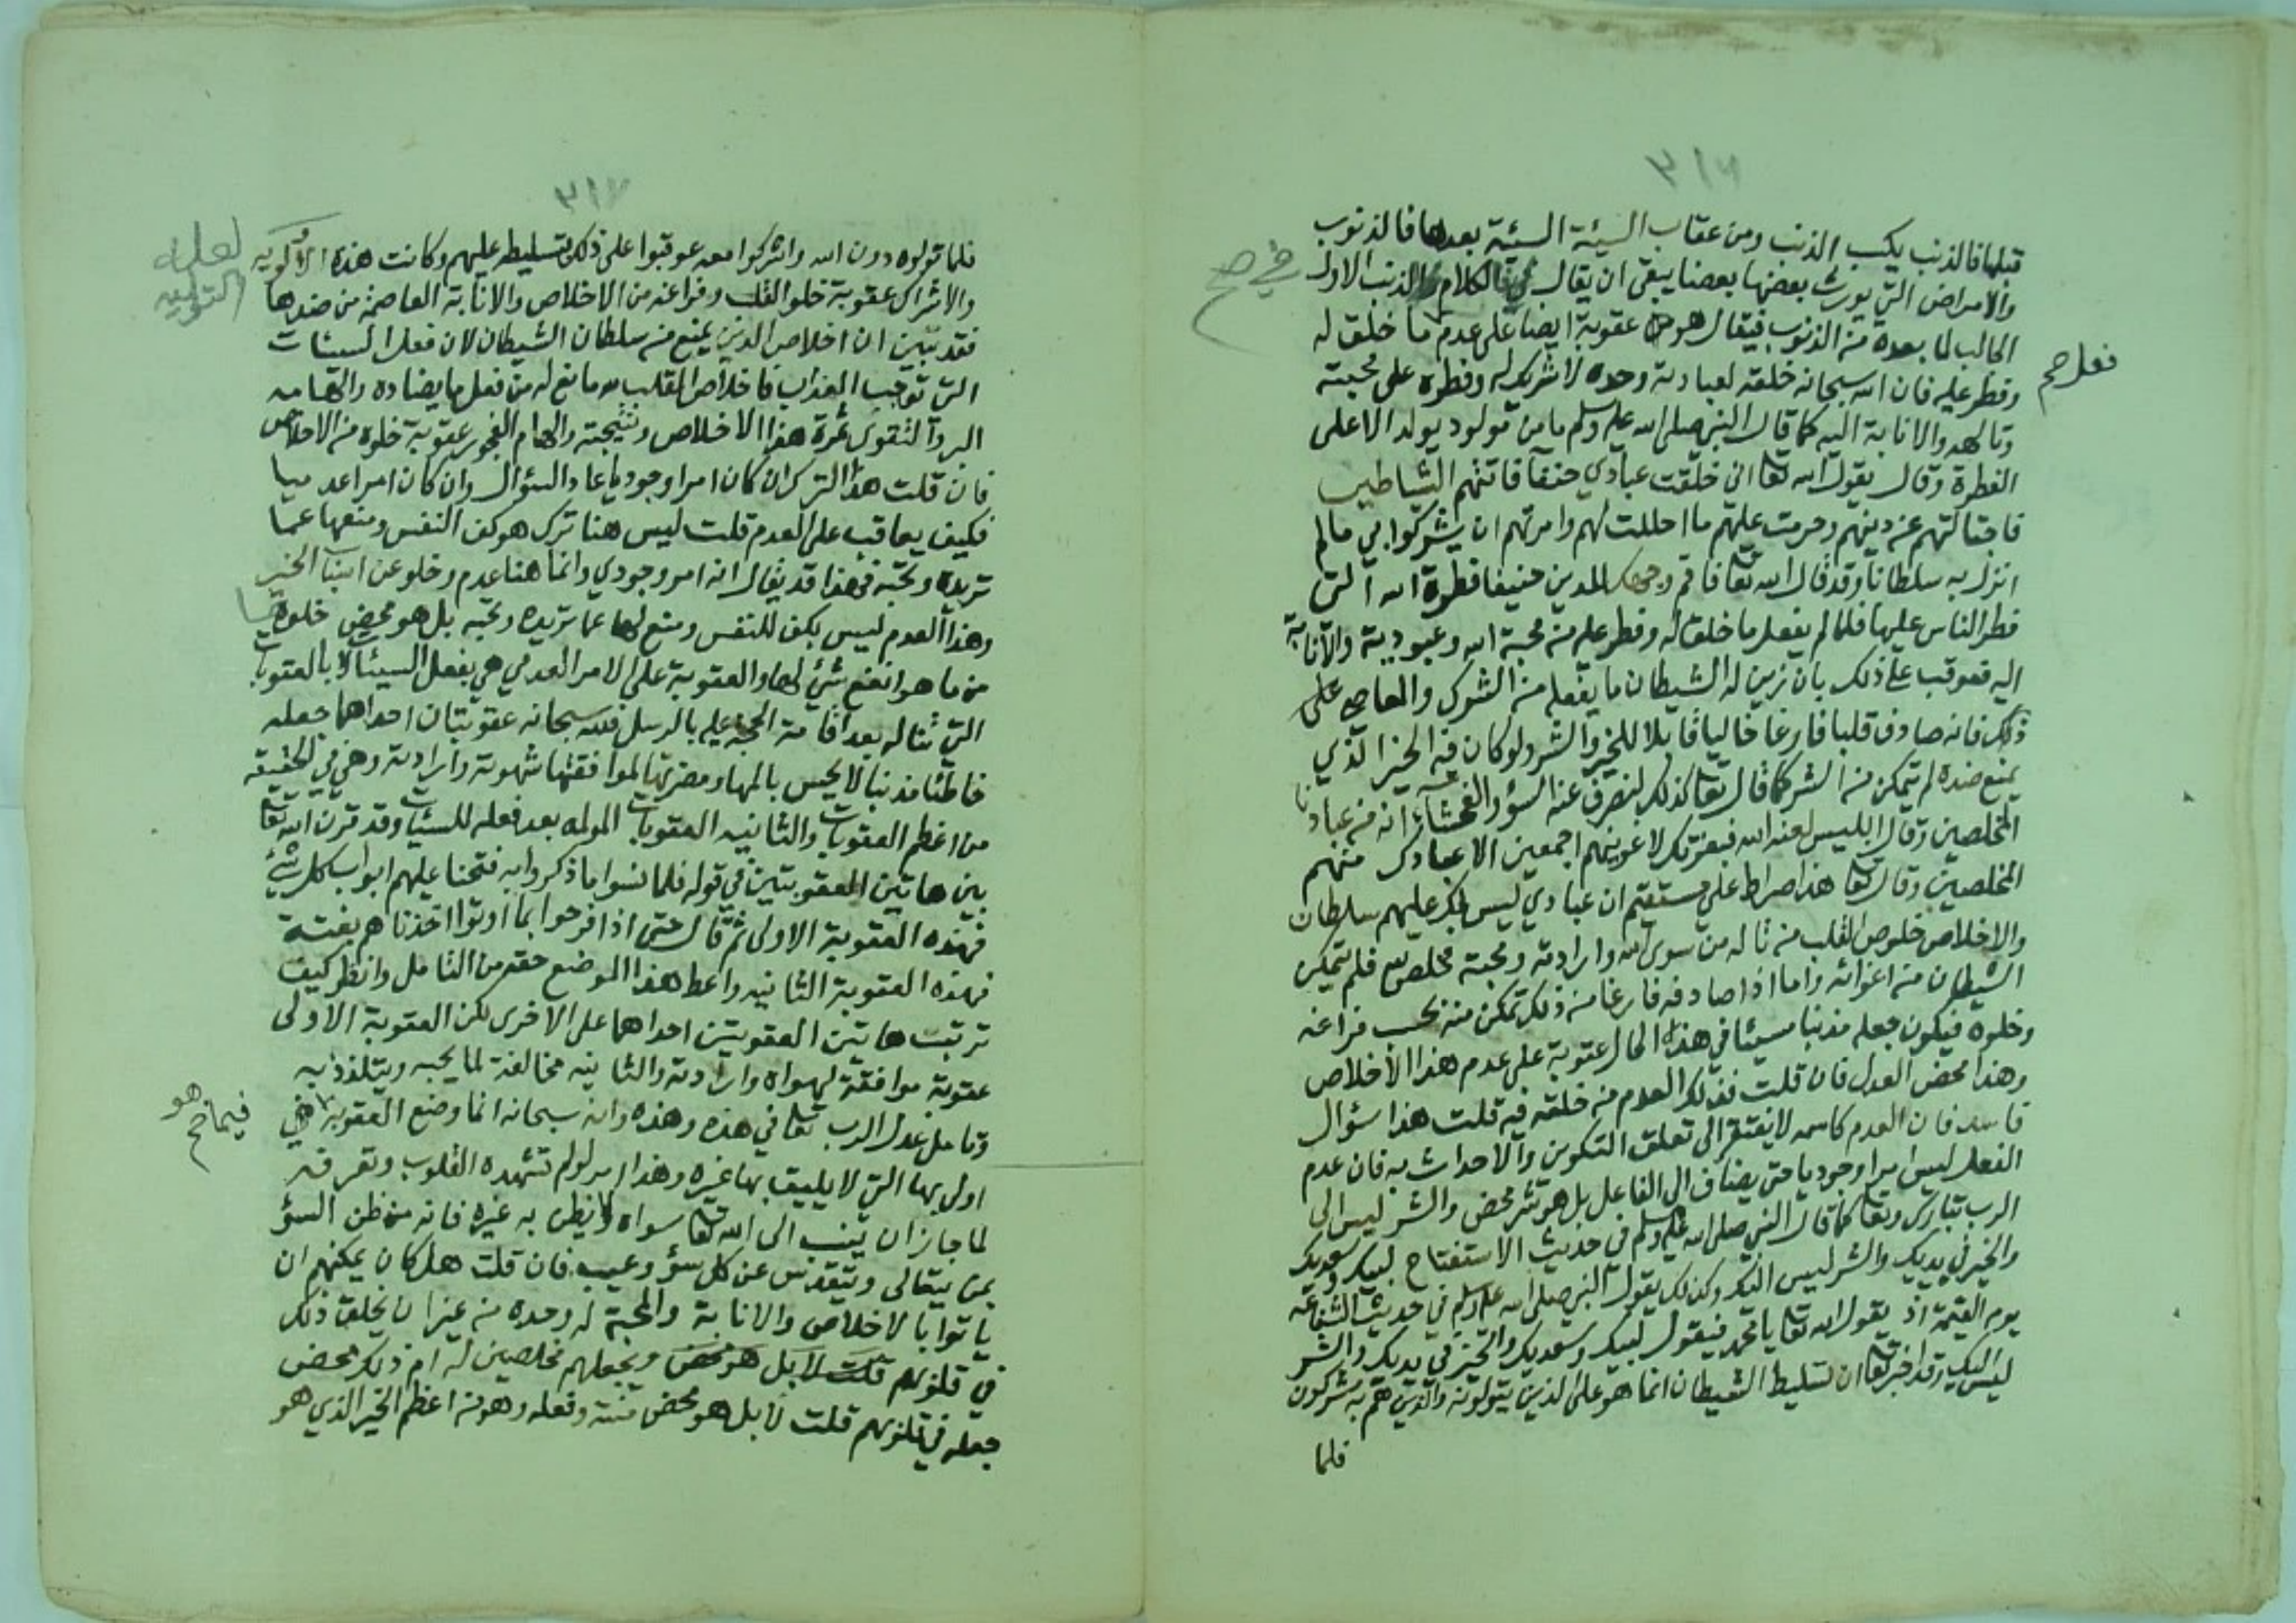 ٣١٦
قبلها فالذنب يكسب الذنب ومن عقاب السيئة السيئة بعدها فالذنوب
والامراض التي يورث بعضها بعضا يبقى ان يقال في الكلام والذنب الاول
في صح
الجالب لما بعده من الذنوب فيقال هو عقوبة ايضا على عدم ما خلق له
فعل صح
وفطر عليه فان الله سبحانه خلقه لعبادته وحده لا شريك له وفطره على محبته
وتالهه والانابة اليه كما قال النبي صلى الله عليه وسلم ما من مولود يولد الا على
الفطرة وقال يقول الله تعا اني خلقت عبادي حنفآ فاتتهم الشياطين
فاجتالتهم عن دينهم وحرمت عليهم ما احللت لهم وامرتهم ان يشركوا بي مالم
انزل به سلطانا وقد قال الله تعا فاقم وجهك للدين حنيفا فطرة الله التي
فطر الناس عليها فلما لم يفعل ما خلق له وفطر عليه من محبة الله وعبوديته والانابة
اليه فعوقب على ذلك بان زين له الشيطان ما يفعله من الشرك والمعاصي على
ذلك فانه صادف قلبا فارغا خاليا قابلا للخير والشر ولو كان فيه الخير الذي
يمنع ضده لم يتمكن منه الشر كما قال تعا كذلك لنصرف عنه السؤ والفحشآء انه من عبادنا
المخلصين وقال ابليس لعنه الله فبعزتك لاغوينهم اجمعين الا عبادك منهم
المخلصين وقال تعا هذا صراط علي مستقيم ان عبادي ليس لك عليهم سلطان
والاخلاص خلوص القلب من تاله من سوى الله وارادته ومحبته فخلص لله فلم يتمكن
الشيطان من اغوائه واما اذا صادفه فارغا من ذلك تمكن منه بحسب فراغه
وخلوه فيكون جعله مذنبا مسيئا في هذه الحال عقوبة على عدم هذا الاخلاص
وهذا محض العدل فان قلت فذلك العدم من خلقه فيه قلت هذا سؤال
فاسد فان العدم كاسمه لا يفتقر الى تعلق التكوين والاحداث به فان عدم
الفعل ليس امرا وجوديا حتى يضاف الى الفاعل بل هو شر محض والشر ليس الى
الرب تبارك وتعا كما قال النبي صلى الله عليه وسلم في حديث الاستفتاح لبيك وسعديك
والخير في يديك والشر ليس اليك وكذلك يقول النبي صلى الله عليه وسلم في حديث الشفاعة
يوم القيمة اذ يقول الله تعا يا محمد فيقول لبيك وسعديك والخير في يديك والشر
ليس اليك وقد اخبر تعا ان تسليط الشيطان انما هو على الذين يتولونه والذين هم به مشركون
فلما
٣١٧
فلما تولوه دون الله واشركوا معه عوقبوا على ذلك بتسليطه عليهم وكانت هذه الالوية
لعله التولية
والاشراك عقوبة خلو القلب وفراغه من الاخلاص والانابة العاصمة من ضدها
فقد تبين ان اخلاص الدين يمنع من سلطان الشيطان لان فعل السيئات
التي توجب العذاب فاخلاص القلب لله مانع له من فعل ما يضاده والهامه
البر والتقوى ثمرة هذا الاخلاص ونتيجته والهام الفجور عقوبة خلوه من الاخلاص
فان قلت هذا الترك ان كان امرا وجوديا عاد السؤال وان كان امرا عدميا
فكيف يعاقب على العدم قلت ليس هنا ترك هو كف النفس ومنعها عما
تريده وتحبه فهذا قد يقال انه امر وجودي وانما هنا عدم وخلو عن اسباب الخير
وهذا العدم ليس بكف للنفس ومنع لها عما تريده وتحبه بل هو محض خلوها
من ما هو انفع شئ لها والعقوبة على الامر العدمي هي بفعل السيئات لا بالعقوبات
التي تناله بعد اقامة الحجة عليه بالرسل فلله سبحانه عقوبتان احداهما جعله
خاطئا مذنبا لا يحس بالمها ومضرتها لموافقتها شهوته وارادته وهي في الحقيقه
من اعظم العقوبات والثانيه العقوبات المولمه بعد فعله للسيئات وقد قرن الله تعا
بين هاتين العقوبتين في قوله فلما نسوا ما ذكروا به فتحنا عليهم ابواب كل شئ
فهذه العقوبة الاولى ثم قال حتى اذا فرحوا بما اوتوا اخذناهم بغتة
فهذه العقوبة الثانيه واعط هذا الموضع حقه من التامل وانظر كيف
ترتبت هاتين العقوبتين احداهما على الاخرى لكن العقوبة الاولى
عقوبة موافقة لهواه وارادته والثانيه مخالفة لما يحبه ويتلذذ به
وتامل عدل الرب تعا في هذه وهذه وانه سبحانه انما وضع العقوبة في
فيما هو صح
اولى بها التي لا يليق بها غيره وهذا امر لو لم تشهده القلوب وتعرفه
لما جاز ان ينسب الى الله تعا سواه ولا يظن به غيره فانه من ظن السؤ
بمن يتعالى ويتقدس عن كل سؤ وعيب فان قلت هل كان يمكنهم ان
ياتوا بالاخلاص والانابة والمحبة له وحده من غير ان يخلق ذلك
في قلوبهم قلت لا بل هو محض ويجعلهم مخلصين له ام ذلك محض
جعله في قلوبهم قلت لا بل هو محض منته وفعله وهو من اعظم الخير الذي هو